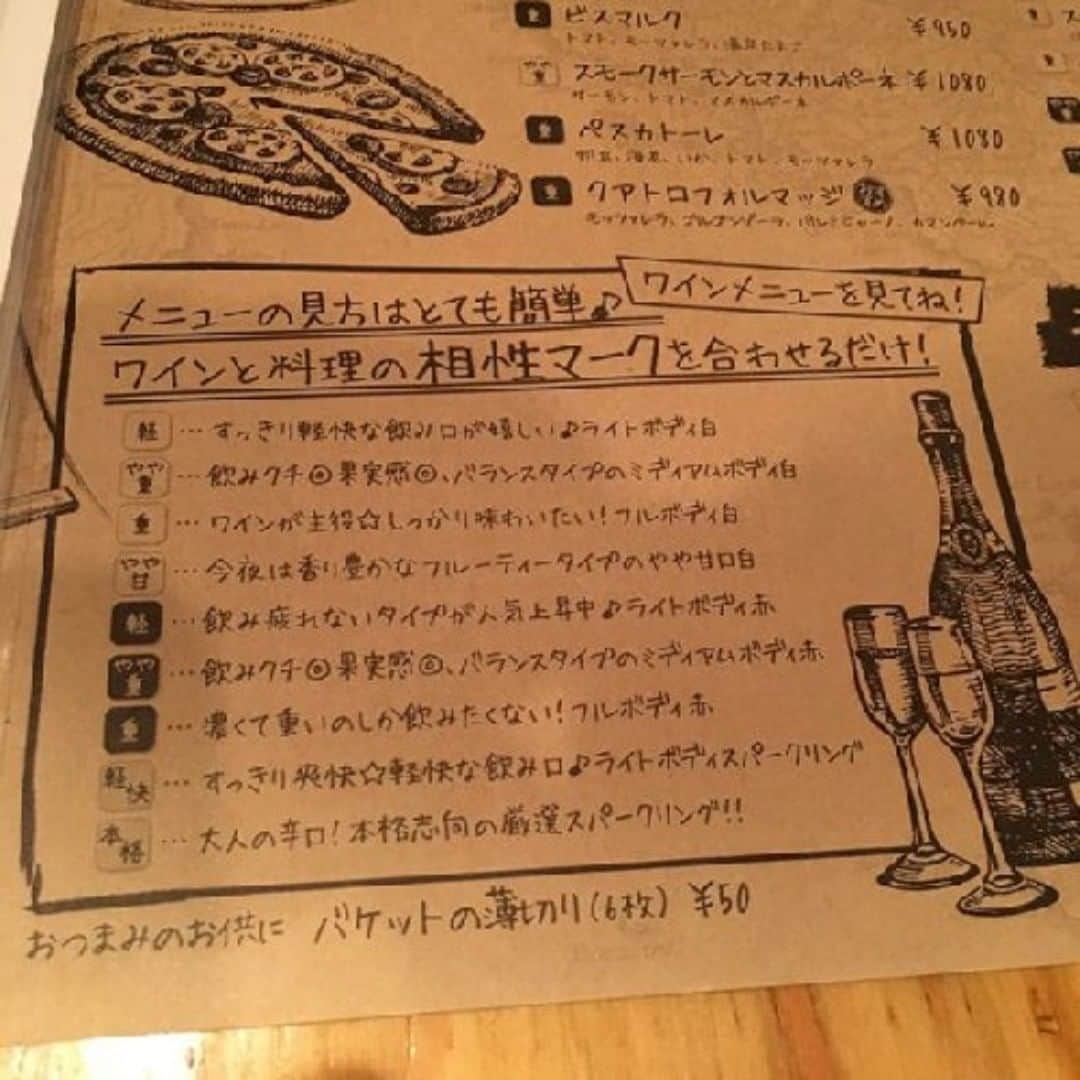 重 ビスマルク ¥950
トマト、モーツァレラ、温泉たまご
やや重 スモークサーモンとマスカルポーネ ¥1080
サーモン、トマト、マスカルポーネ
重 ペスカトーレ ¥1080
海老、いか、トマト、モーツァレラ
重 クアトロフォルマッジ ¥980
モッツァレラ、ゴルゴンゾーラ、
ワインメニューを見てね!
メニューの見方はとても簡単♪
ワインと料理の相性マークを合わせるだけ!
軽 … すっきり軽快な飲み口が嬉しい♪ライトボディ白
やや重 … 飲みクチ◎果実感◎、バランスタイプのミディアムボディ白
重 … ワインが主役☆しっかり味わいたい!フルボディ白
やや甘 … 今夜は香り豊かなフルーティータイプのやや甘口白
軽 … 飲み疲れないタイプが人気上昇中♪ライトボディ赤
やや重 … 飲みクチ◎果実感◎、バランスタイプのミディアムボディ赤
重 … 濃くて重いのしか飲みたくない!フルボディ赤
軽快 … すっきり爽快☆軽快な飲み口♪ライトボディスパークリング
本格 … 大人の辛口!本格志向の厳選スパークリング!!
おつまみのお供に バケットの薄切り(6枚) ¥50